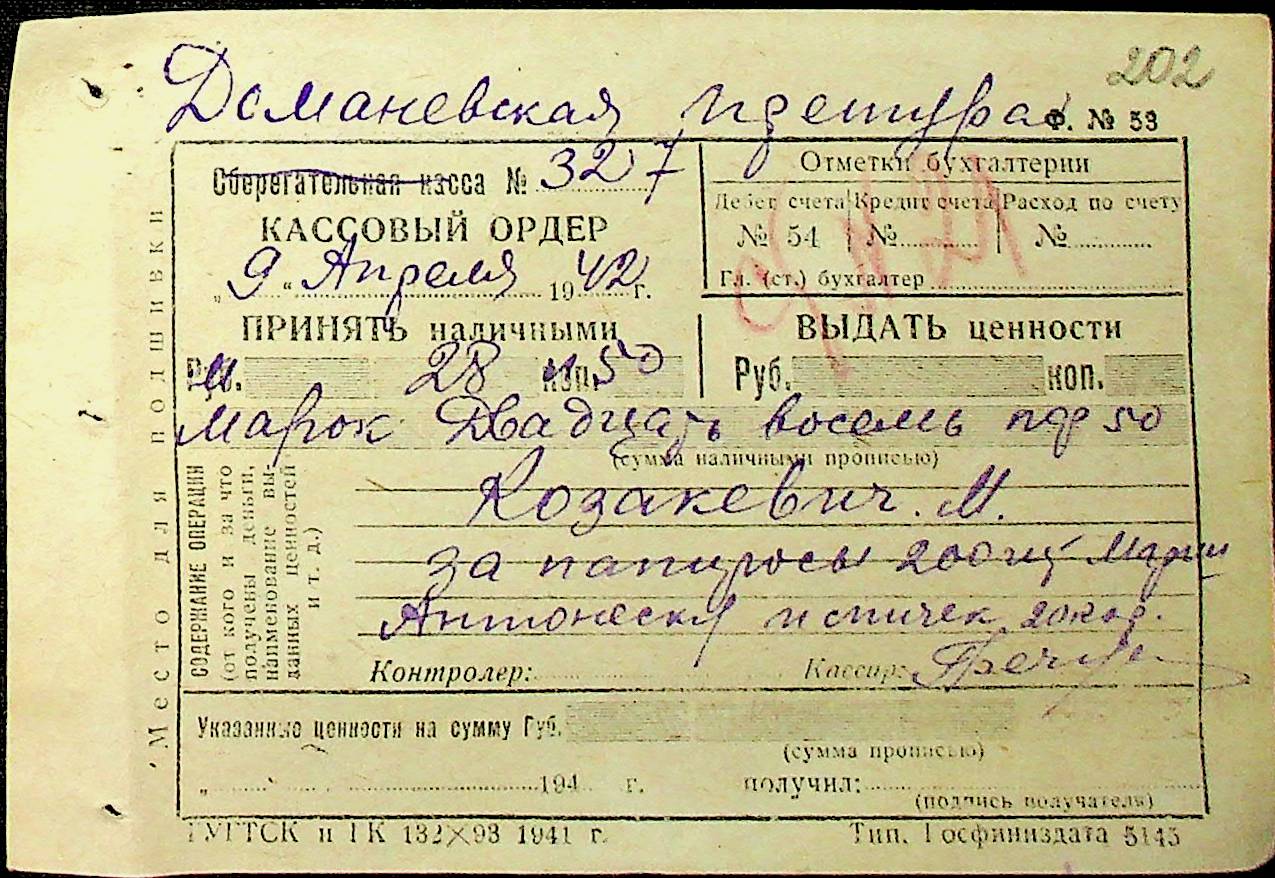 202
Доманевская претура Ф. № 53
Сберегательная касса № 327
КАССОВЫЙ ОРДЕР
„9“ Апреля 1942 г.
Отметки бухгалтерии
Дебет счета Кредит счета Расход по счету
№ 54 № №
Гл. (ст.) бухгалтер
ПРИНЯТЬ наличными
28 коп. 50
ВЫДАТЬ ценности
Руб. коп.
Марок Двадцать восемь пф 50
(сумма наличными прописью)
Место для подшивки
СОДЕРЖАНИЕ ОПЕРАЦИИ
(от кого и за что
получены деньги,
наименование вы-
данных ценностей
и т. д.)
Козакевич. М.
за папиросы 200 шт
Антонеску и спичек 20 кор.
Контролер: Кассир:
Указанные ценности на сумму Руб.
(сумма прописью)
„ “ 194 г. получил:
(подпись получателя)
ГУГТСК и ГК 132×93 1941 г. Тип. Госфиниздата 5145